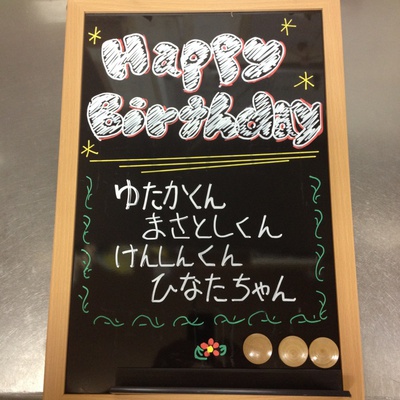 Happy
Birthday
ゆたかくん
まさとしくん
けんしんくん
ひなたちゃん